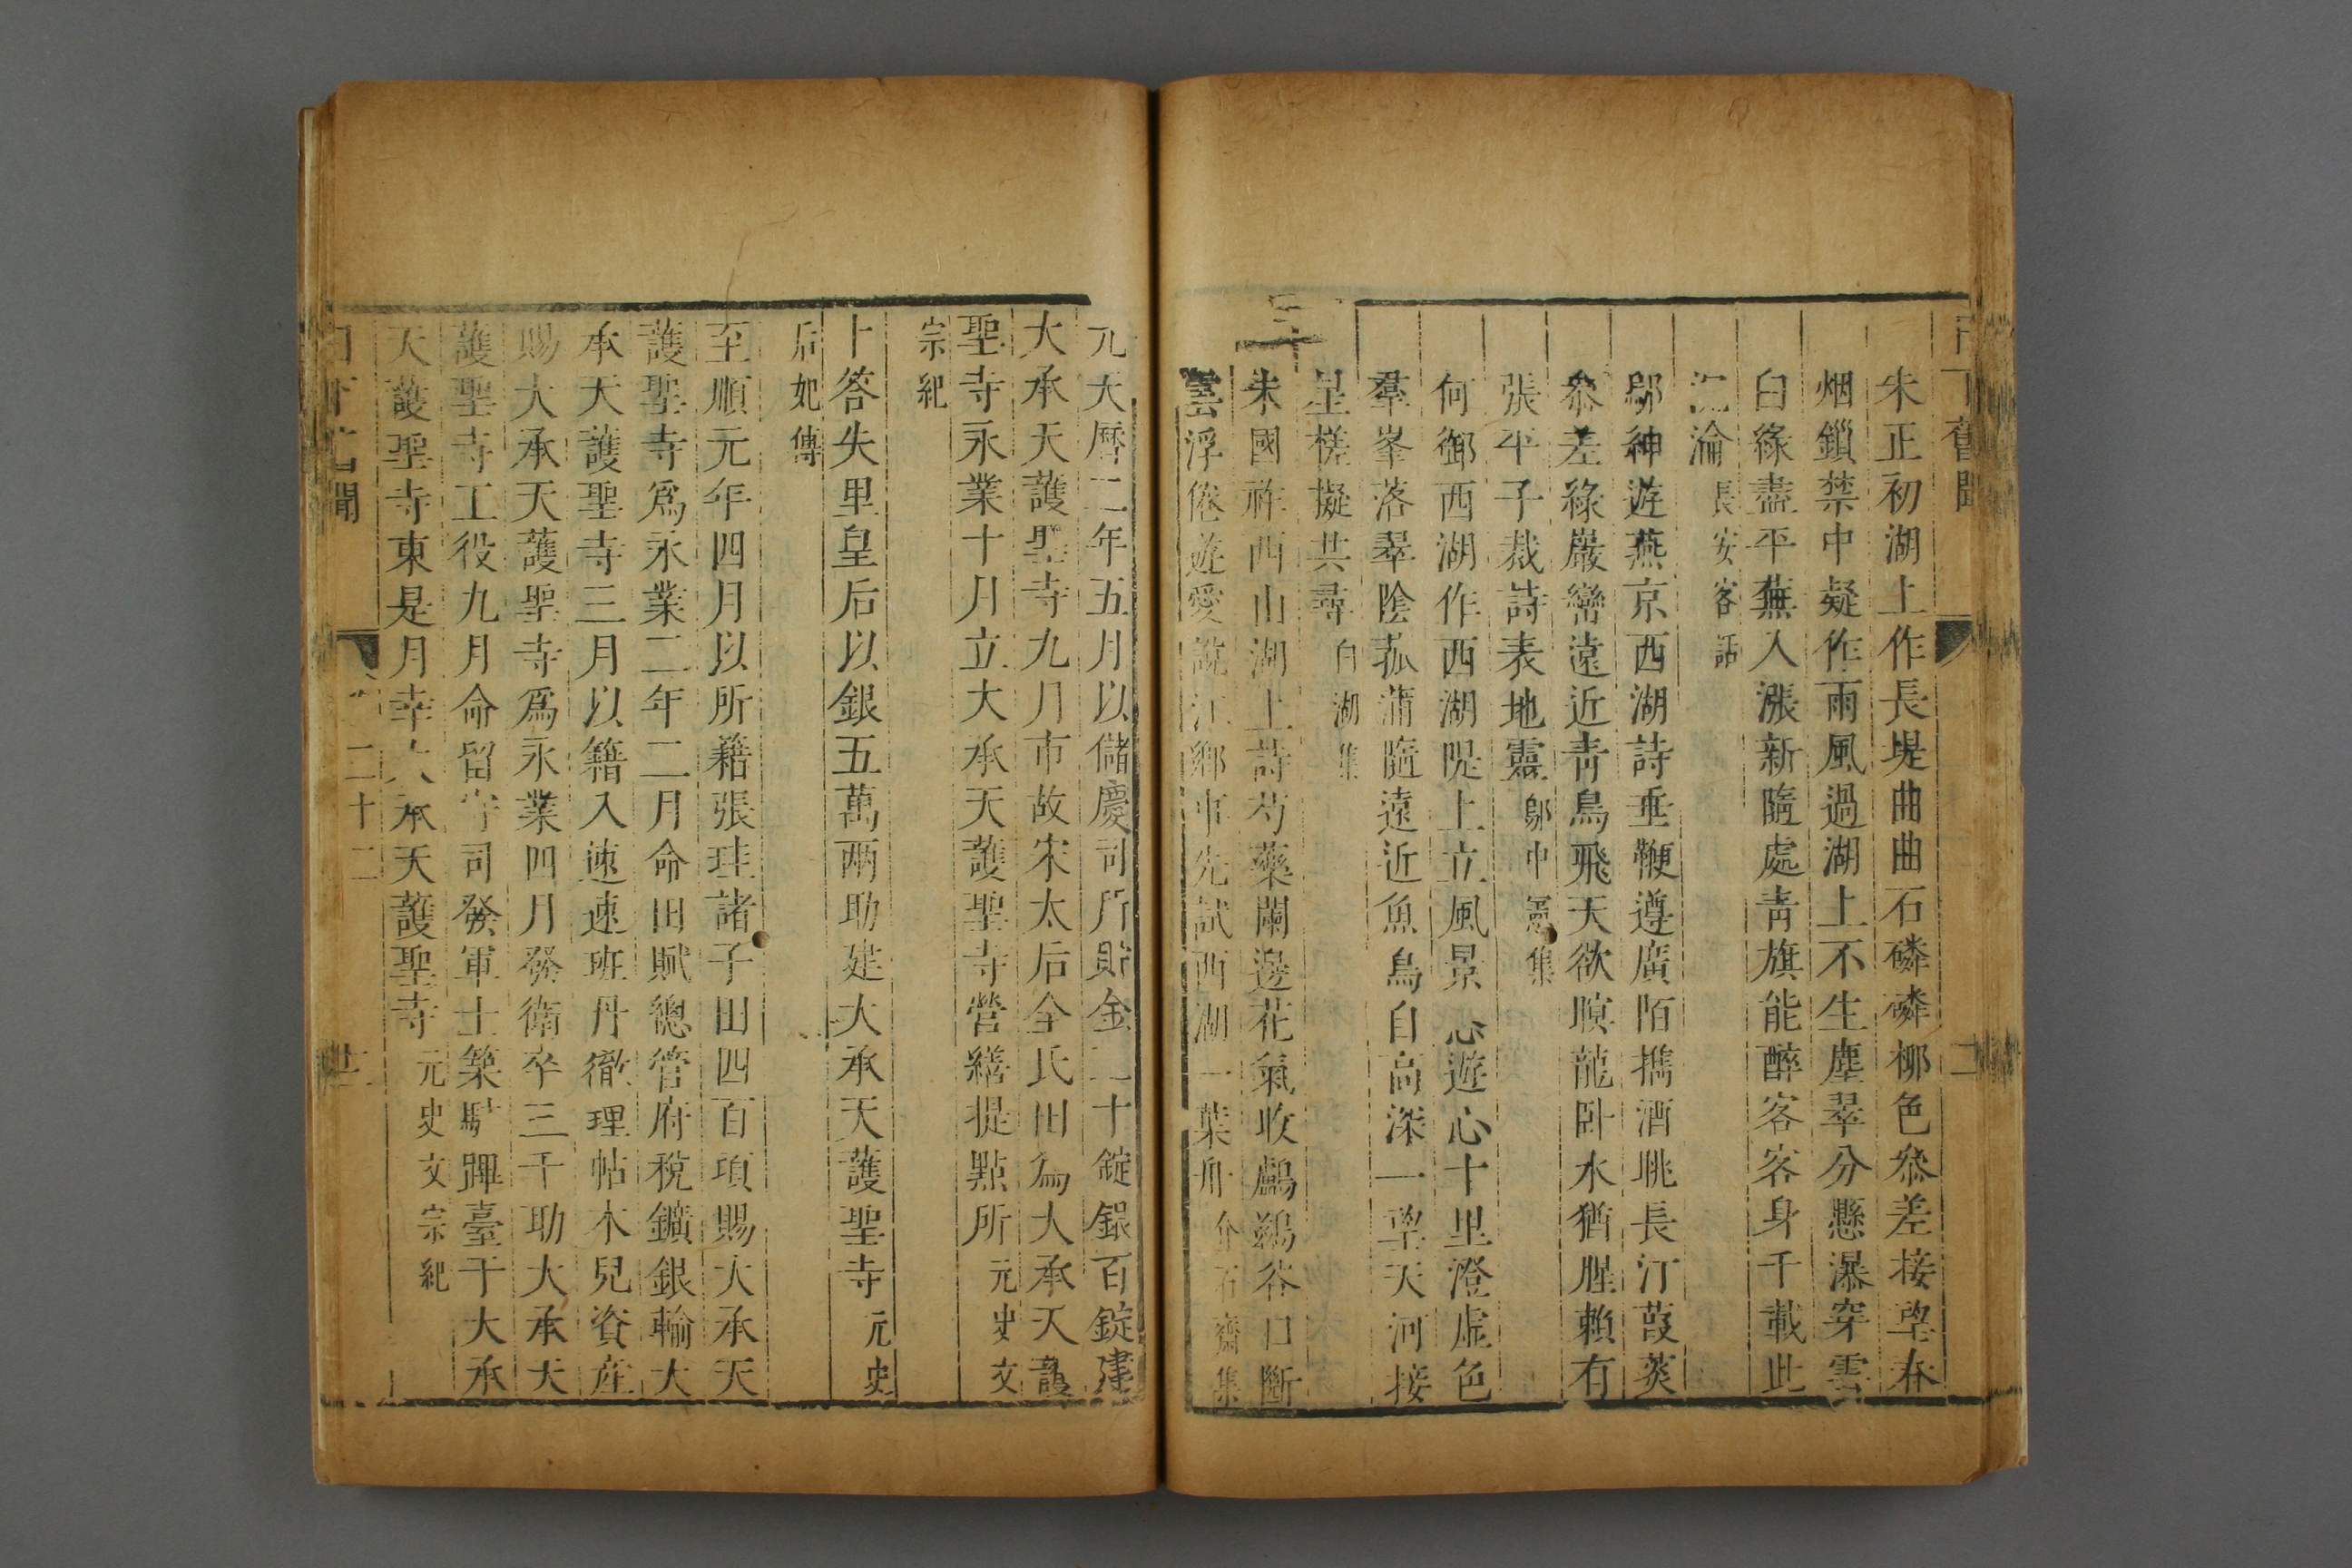 朱正初湖上作長堤曲曲石磷磷柳色叅差接望春
烟鎖禁中疑作雨風過湖上不生塵翠分懸瀑穿雲
白綠盡平蕪入漲新隨處青旗能醉客客身千載此
沉淪長安客話
鄔紳遊燕京西湖詩垂鞭遵廣陌携酒眺長汀葭菼
叅差綠巖巒遠近青鳥飛天欲暝龍卧水猶腥賴有
張平子裁詩表地靈鄔中憲集
何御西湖作西湖隄上立風景心遊心十里澄虛色
羣峯落翠陰菰蒲隨遠近魚鳥自高深一望天河接
星槎擬共尋白湖集
朱國祚西山湖上詩芍藥闌邊花氣收鸕鷀谷口斷
雲浮倦遊愛說江鄉事先試西湖一葉舟介石齋集
元天曆二年五月以儲慶司所貯金二十錠銀百錠建
大承天護聖寺九月市故宋太后全氏田為大承天護
聖寺永業十月立大承天護聖寺營繕提點所元史文
宗紀
卜答失里皇后以銀五萬兩助建大承天護聖寺元史
后妃傳
至順元年四月以所籍張珪諸子田四百頃賜大承天
護聖寺爲永業二年二月命田賦總管府稅鑛銀輸大
承天護聖寺三月以籍入速速班丹徹理帖木兒資產
賜大承天護聖寺爲永業四月發衛卒三千助大承天
護聖寺工役九月命留守司發軍士築駐蹕臺于大承
天護聖寺東是月幸大承天護聖寺元史文宗紀
日下舊聞
二十二